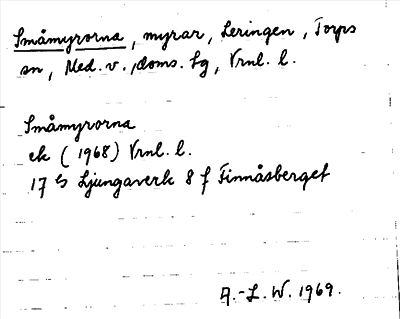 Småmyrorna, myrar, Leringen, Torps
sn, Med. v., doms. Lg, Vrnl. l.
Småmyrorna
ek (1968) Vrnl. l.
17 G Ljungaverk 8 f Finnåsberget
A.-L. W. 1969.